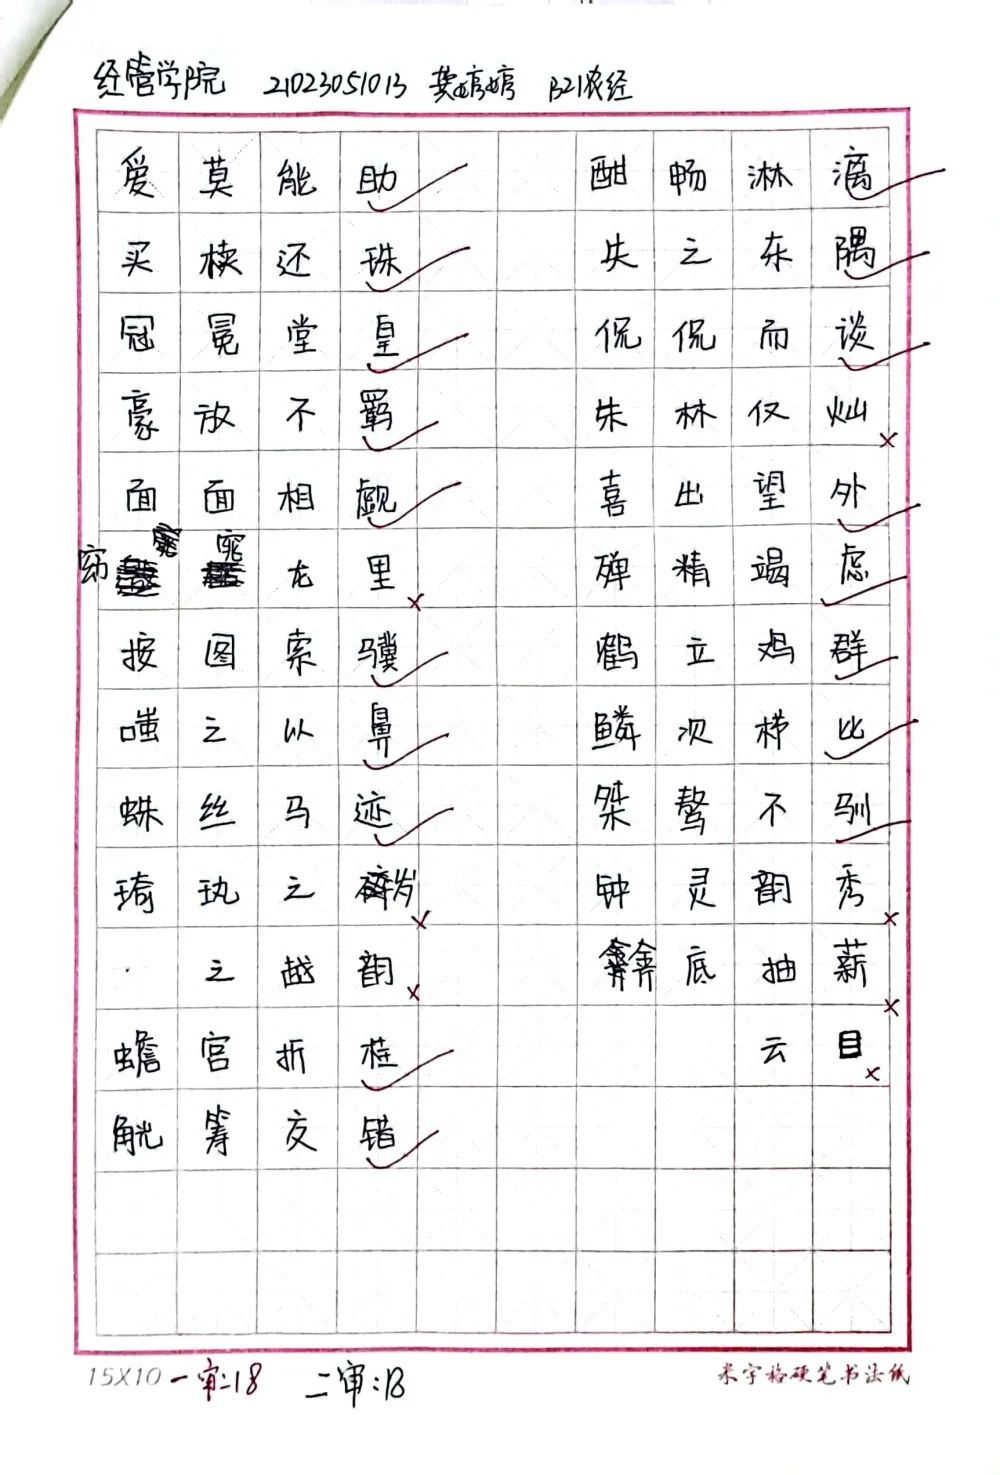 经管学院 21023051013 龚婷婷 B21农经
爱莫能助 酣畅淋漓
买椟还珠 失之东隅
冠冕堂皇 侃侃而谈
豪放不羁 朱林仅灿
面面相觑 喜出望外
窈窕 窕 龙里 殚精竭虑
按图索骥 鹤立鸡群
嗤之以鼻 鳞次栉比
蛛丝马迹 桀骜不驯
之 钟灵韵秀
之越韵 底抽薪
蟾宫折桂 云目
觥筹交错
15X10 一审:18 二审:18 米字格硬笔书法纸